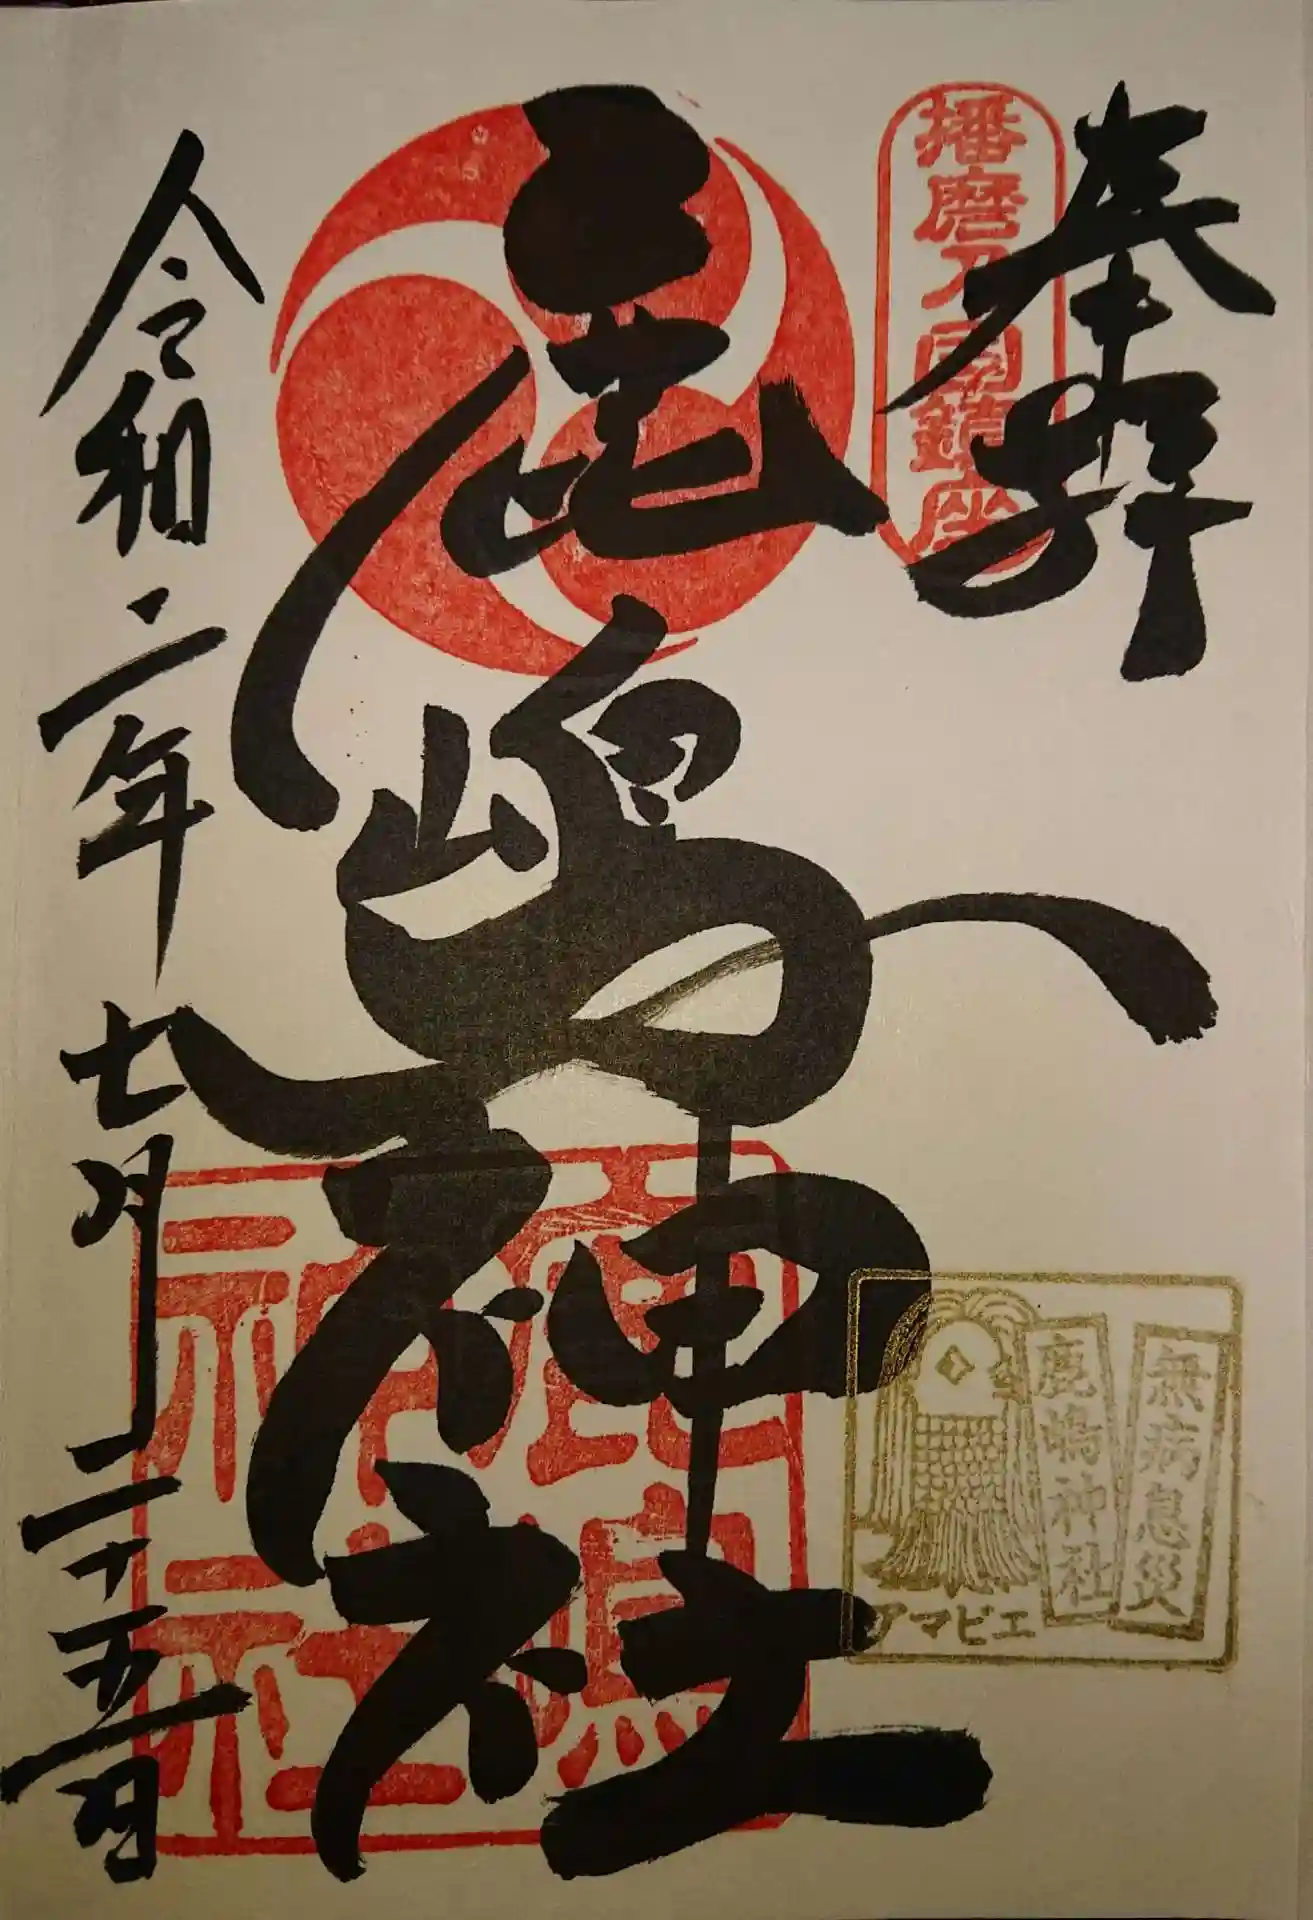 奉拝
播磨乃国鎮座
鹿嶋神社
鹿嶋神社
令和二年七月二十五日
無病息災
鹿嶋神社
アマビエ